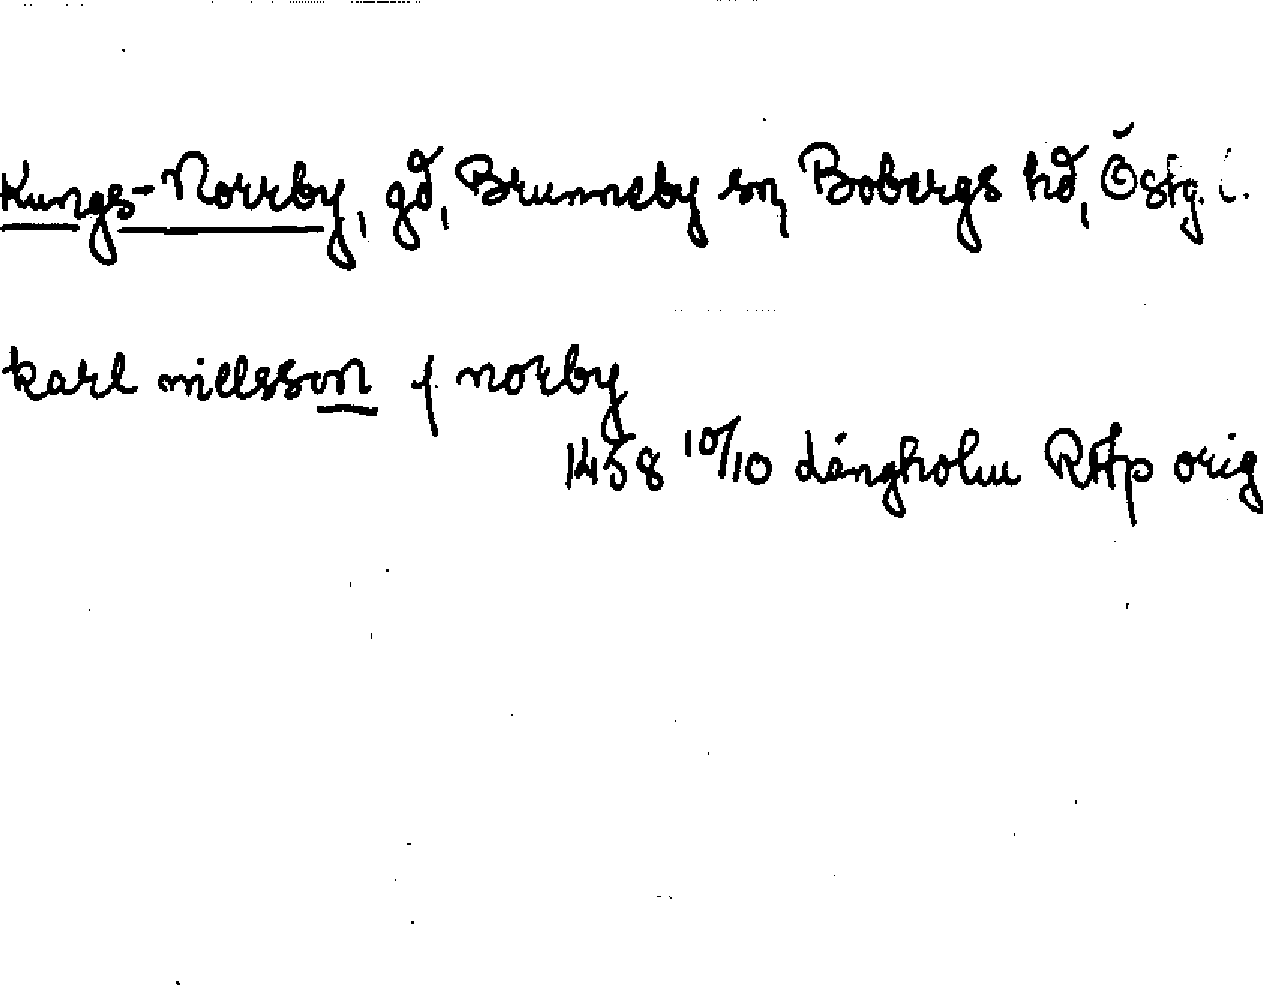 Kungs-Norrby, gd, Brunneby sn, Bobergs hd, Östg. l.
karl nielsson j norby
1458 10/10 Långholm RAp orig